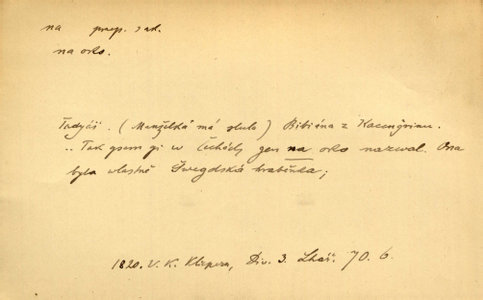 na praep. s ak.
na oko.
Tadyáš. (Manželka má slulo) Bibiána z Kacengrünu.
.. Tak gsem gi w Čechách gen na oko nazwal. Ona
byla wlastně Šwegdská hraběnka;
1820. V. K. Klicpera, Div. 3. Lhář. 70. 6.